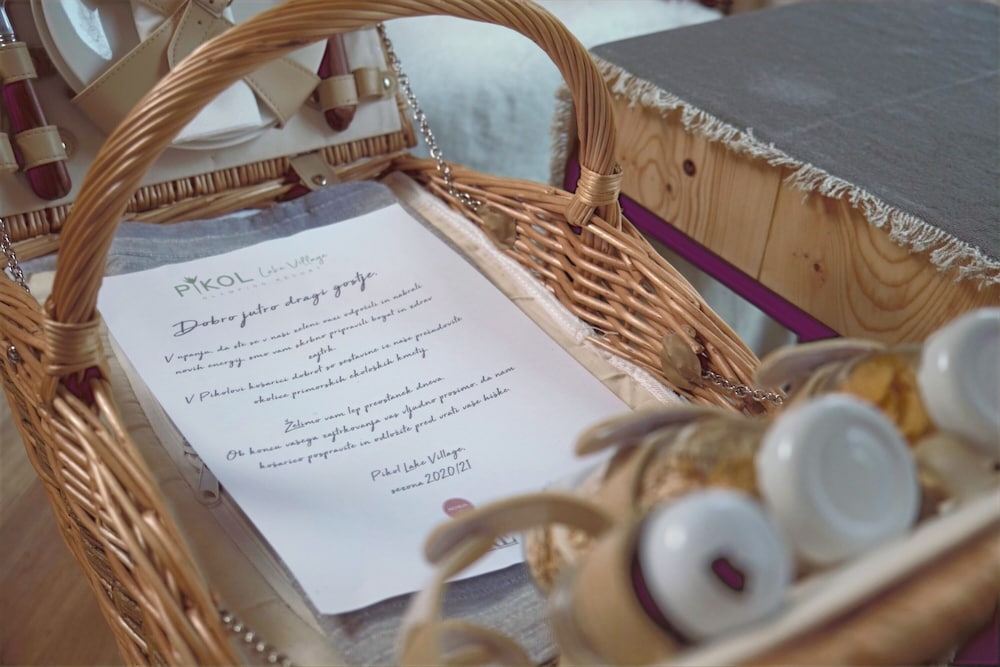 PIKOL Lake Village
GLAMPING RESORT
Dobro jutro dragi gostje,
V upanju, da ste se v naši zeleni vasi odpočili in nabrali
novih energij, smo vam skrbno pripravili bogat in zdrav
zajtrk.
V Pikolovi košarici dobrot so sestavine iz naše pridelave
okolice primorskih ekoloških kmetij.
Želimo vam lep preostanek dneva.
Ob koncu vašega zajtrkovanja vas vljudno prosimo, da nam
košarico pospravite in odložite pred vrati vaše hiške.
Pikol Lake Village,
sezona 2020/21